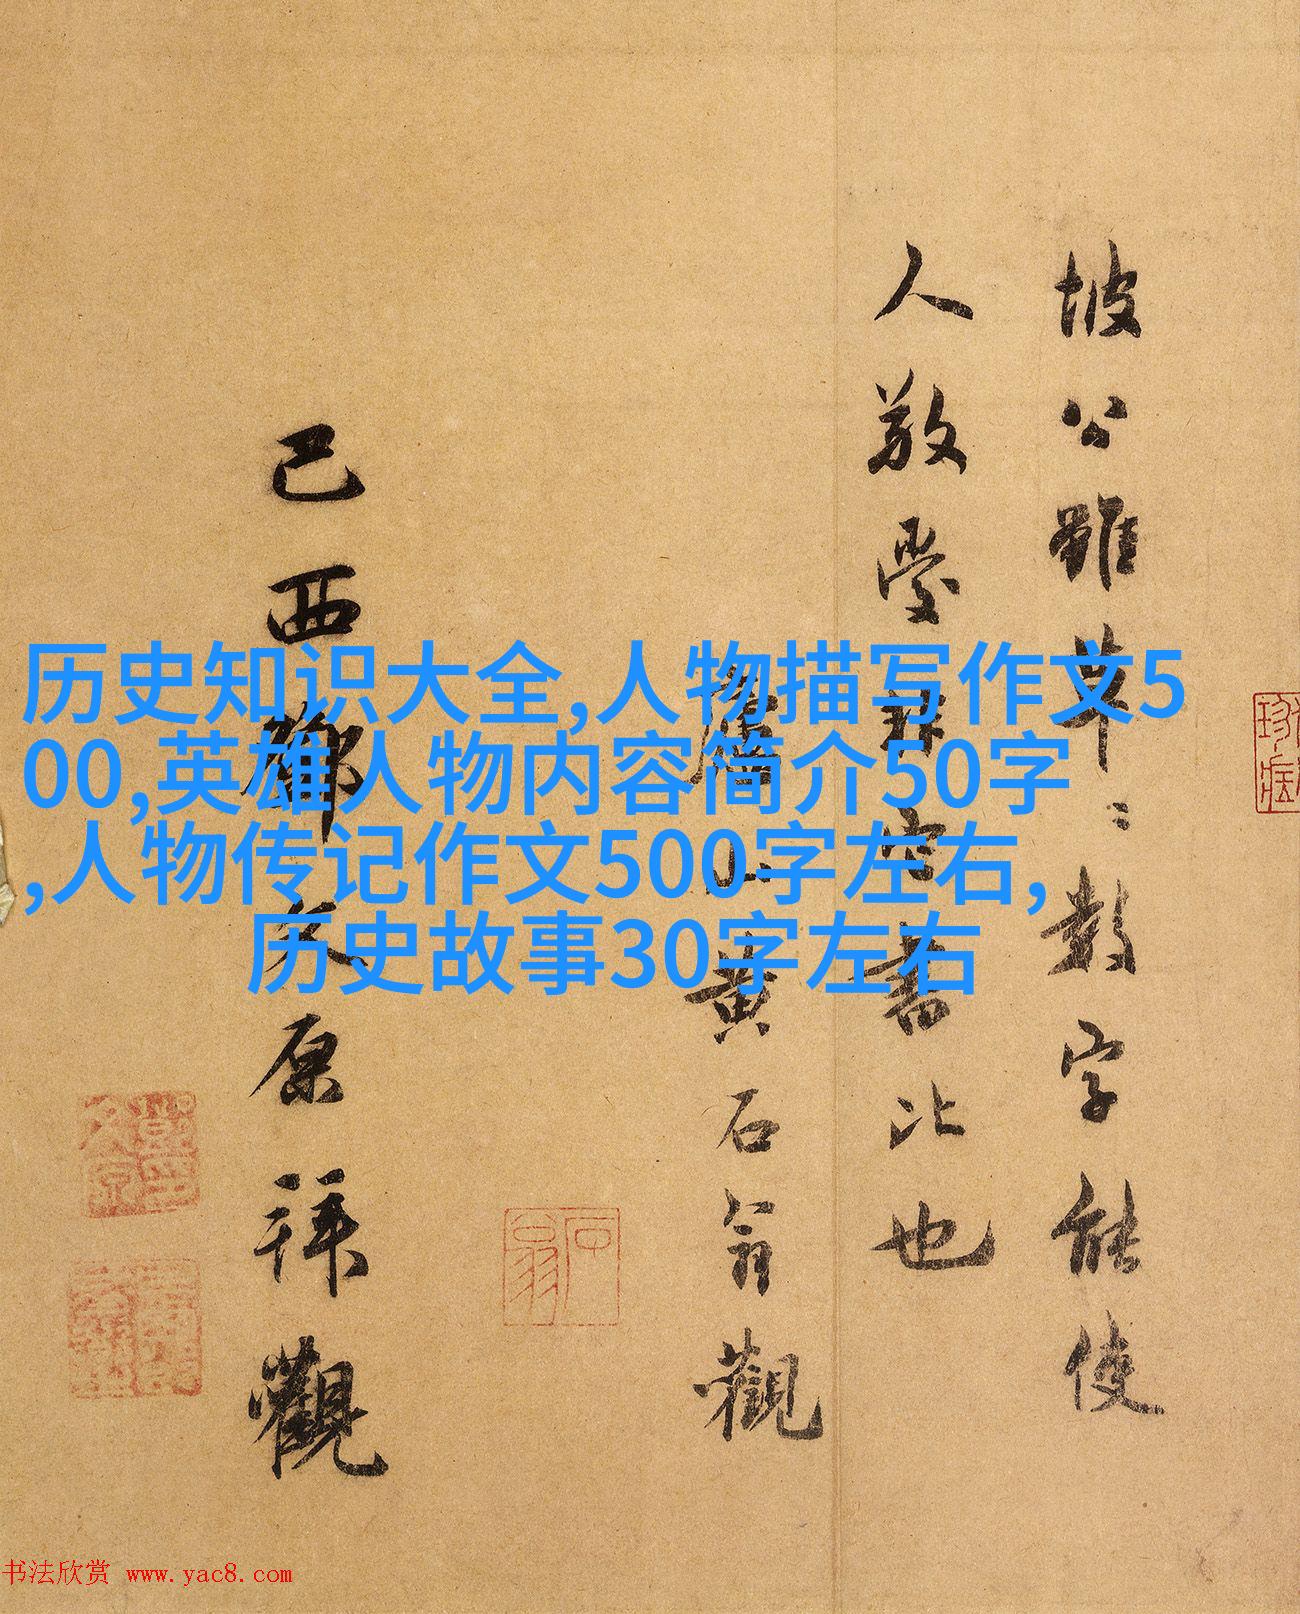 坡公雖草々數字能使
人敬愛非它書比也
廬山黃石翁觀
石翁
己酉鄧文原拜觀
历史知识大全,人物描写作文5
00,英雄人物内容简介50字
,人物传记作文500字左右,
历史故事30字左右
书法欣赏 www.yac8.com